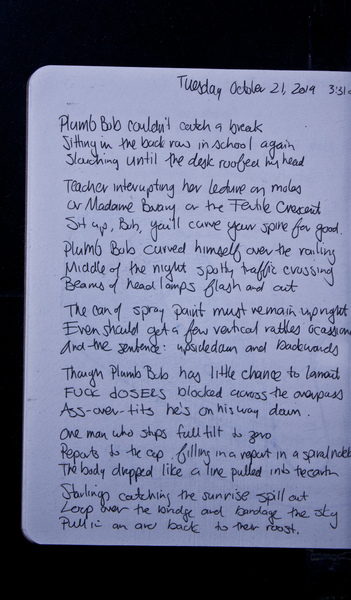 Tuesday October 21, 2019 3:31
Plumb Bob couldn't catch a break
Sitting in the back row in school again
Slouching until the desk roofed his head
Teacher interrupting her lecture on moles
or Madame Bovary or the Fertile Crescent
Sit up, Bob, you'll curve your spine for good.
Plumb Bob curved himself over the railing
Middle of the night spotty traffic crossing
Beams of head lamps flash and out
The can of spray paint must remain upright
Even should get a few vertical rattles ocassion
And the sentence: upsidedown and backwards
Though Plumb Bob has little chance to lament
FUCK LOSERS blocked across the overpass
Ass-over-tits he's on his way down.
One man who stops full tilt to zero
Reports to the cop filling in a report in a spiral noteb
The body dropped like a line pulled into the earth
Starlings catching the sunrise spill out
Loop over the bridge and bandage the sky
Pull in an arc back to their roost.